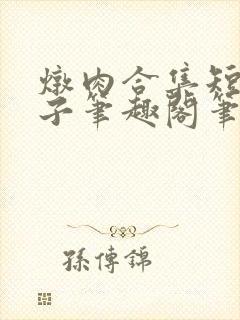 燉肉合集短
子筆趣閣筆
孫傳錦